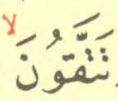 لا
تَتَّقُونَ